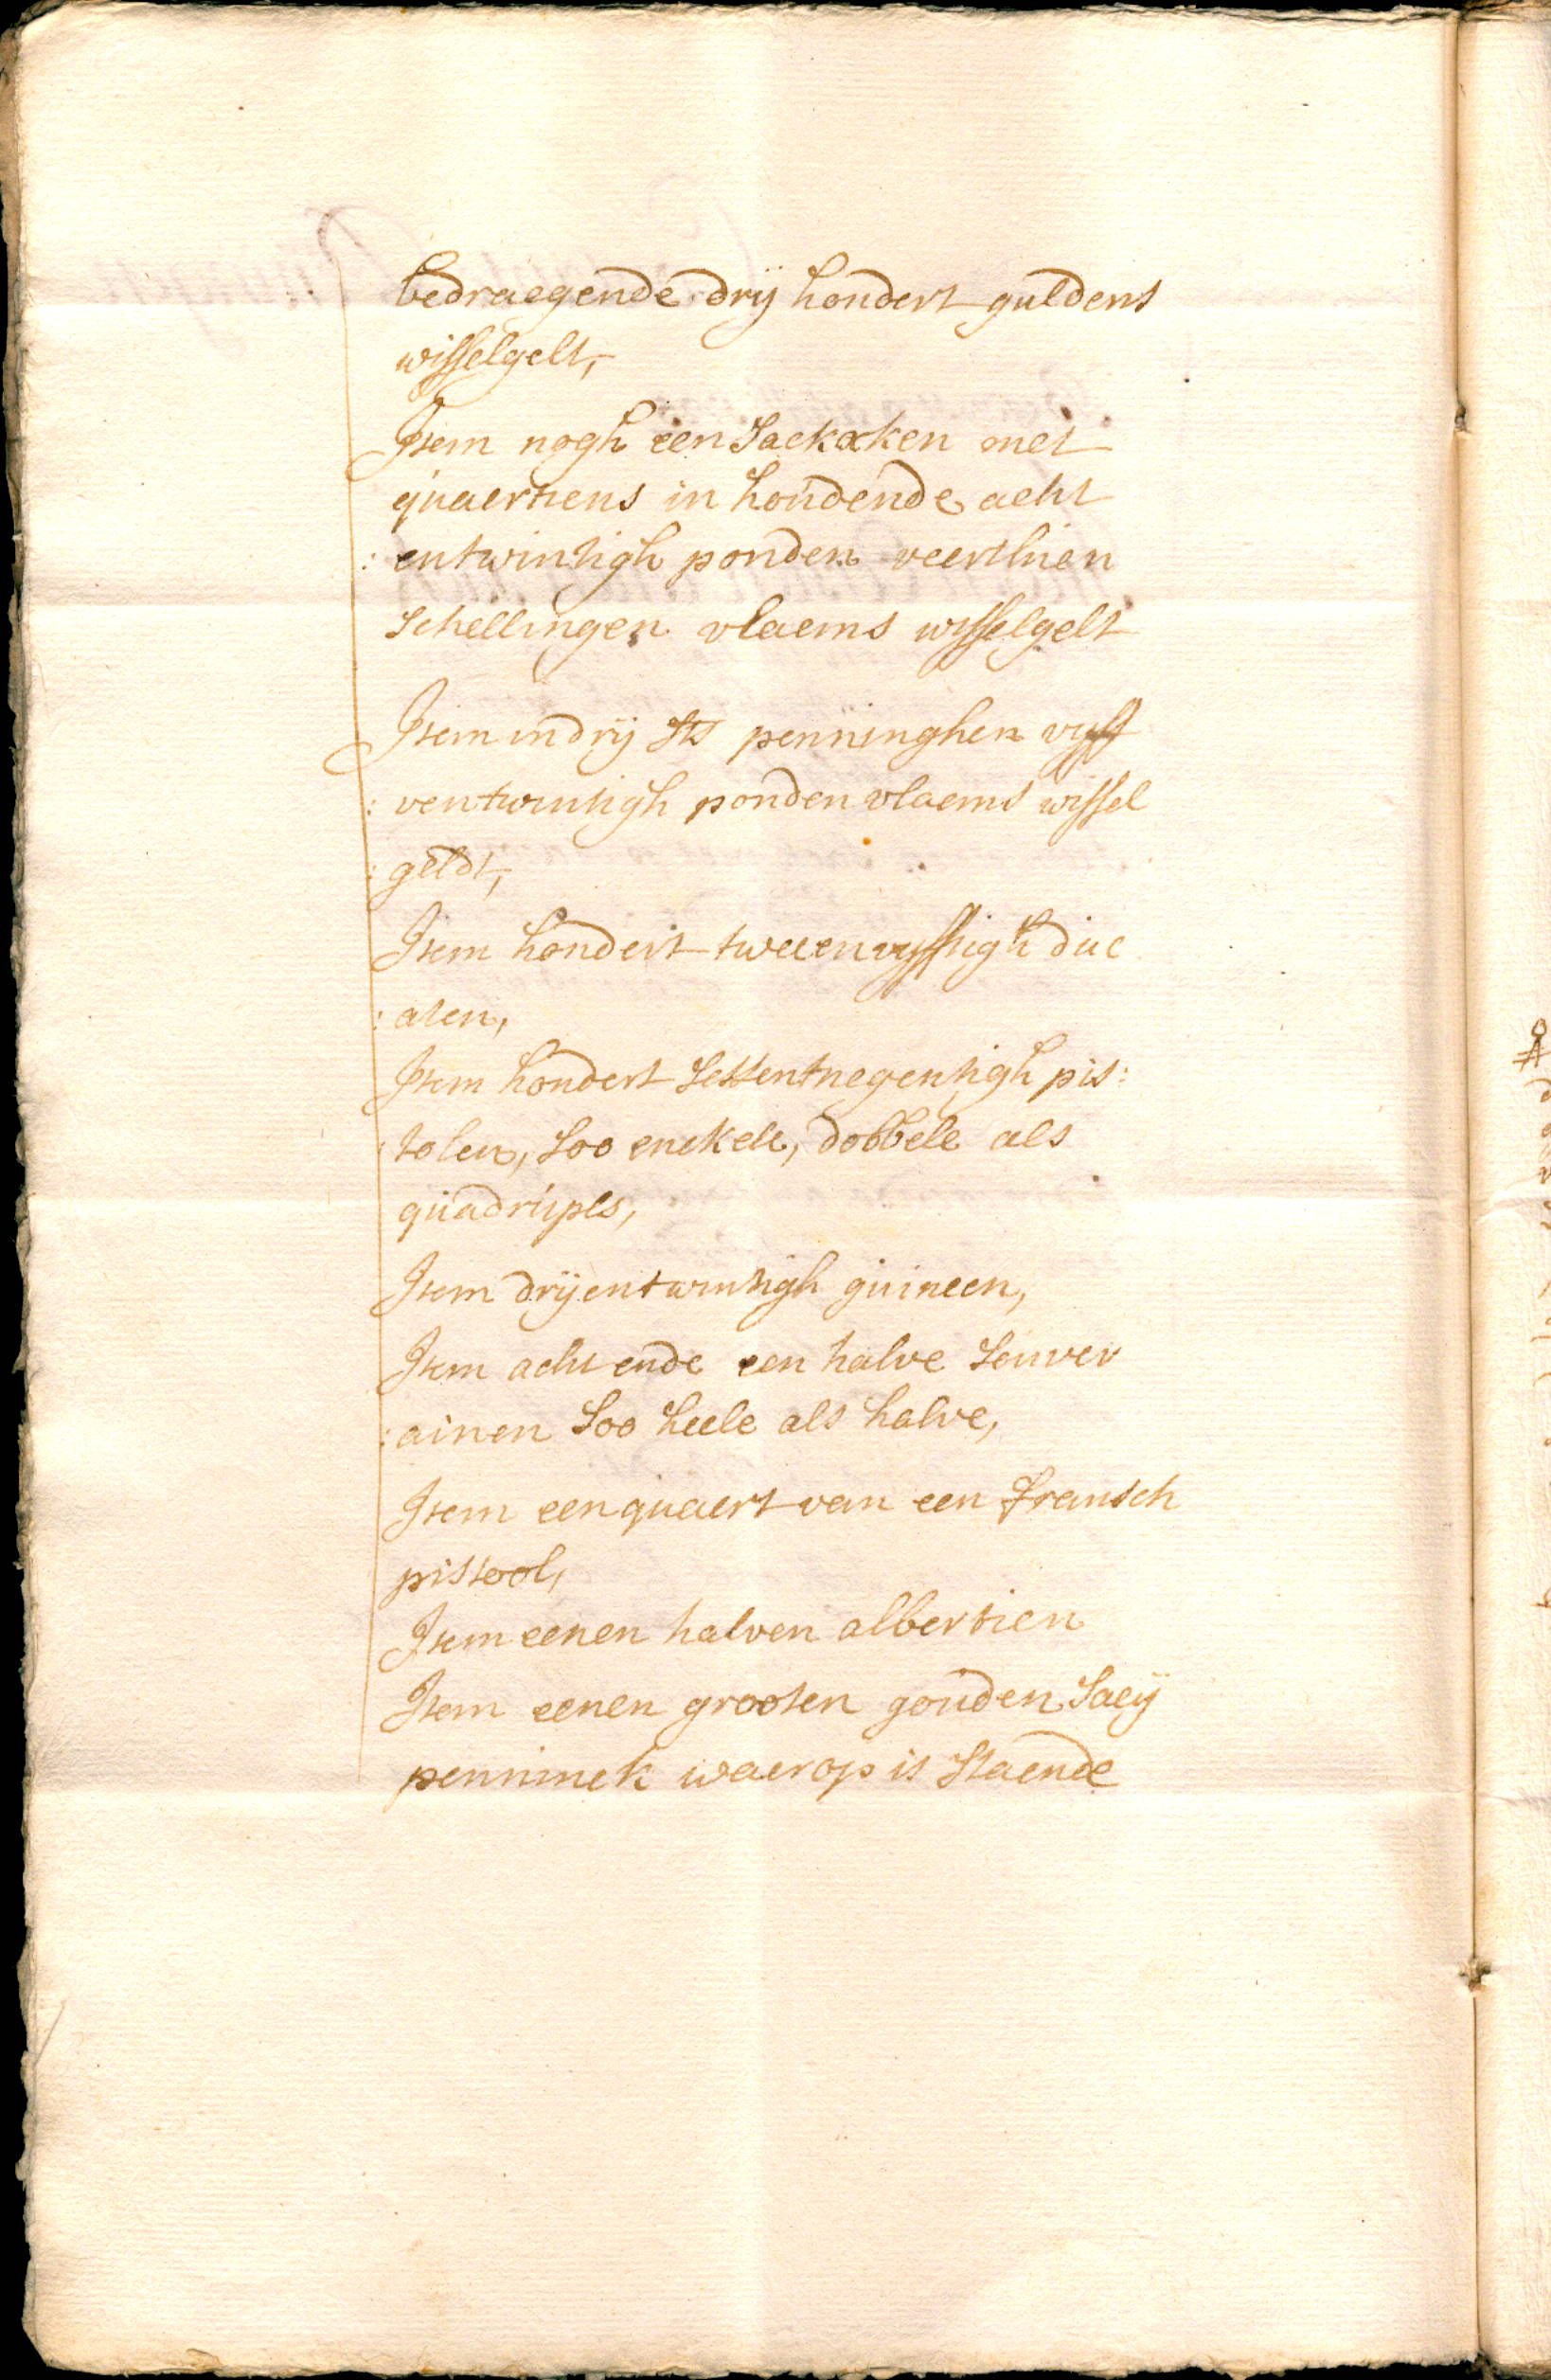 bedraegende drij hondert guldens
wisselgelt,
Item nogh een Sackxken met
quaertiens in houdende acht
: entwintigh ponden veerthien
Schellingen vlaems wisselgelt
Item in drij Sts penninghen vijff
: ventwintigh ponden vlaems wissel
: geldt,
Item hondert tweeenvijftigh duc
: aten,
Item hondert Sessentnegentigh pis:
: tolen, Soo enckele, dobbele als
quadrupls,
Item drijentwintigh guineen,
Item acht ende een halve Souver
: ainen Soo heele als halve,
Item een quaert van een Fransch
pistool,
Item eenen halven albertien
Item eenen grooten gouden Saeij
penninck waerop is Staende